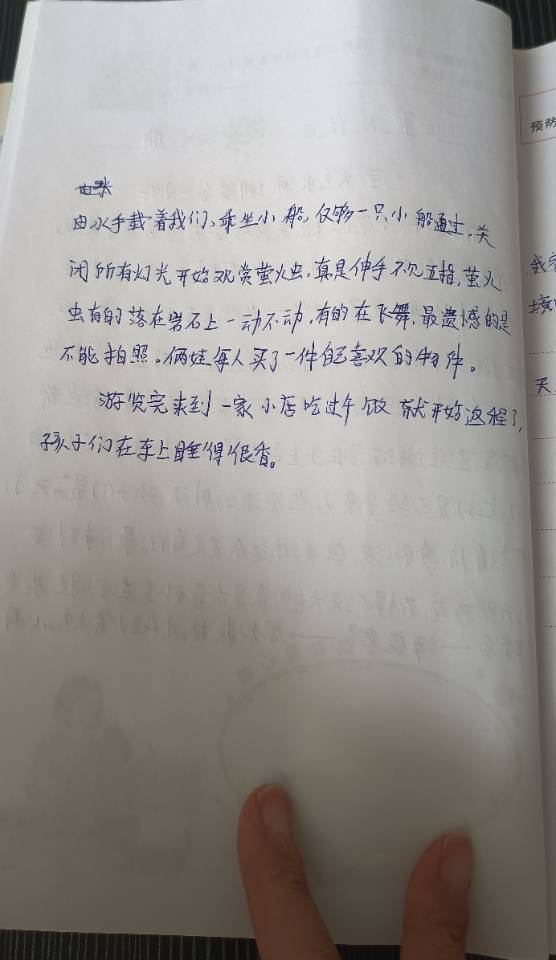 由水手载着我们、乘坐小船,仅够一只小船通过,关
闭所有灯光开始观赏萤火虫,真是伸手不见五指,萤火
虫有的落在岩石上一动不动,有的在飞舞,最遗憾的是
不能拍照。俩娃每人买了一件自己喜欢的物件。
游览完来到一家小店吃过午饭就开始返程了,
孩子们在车上睡得很香。
预防
天